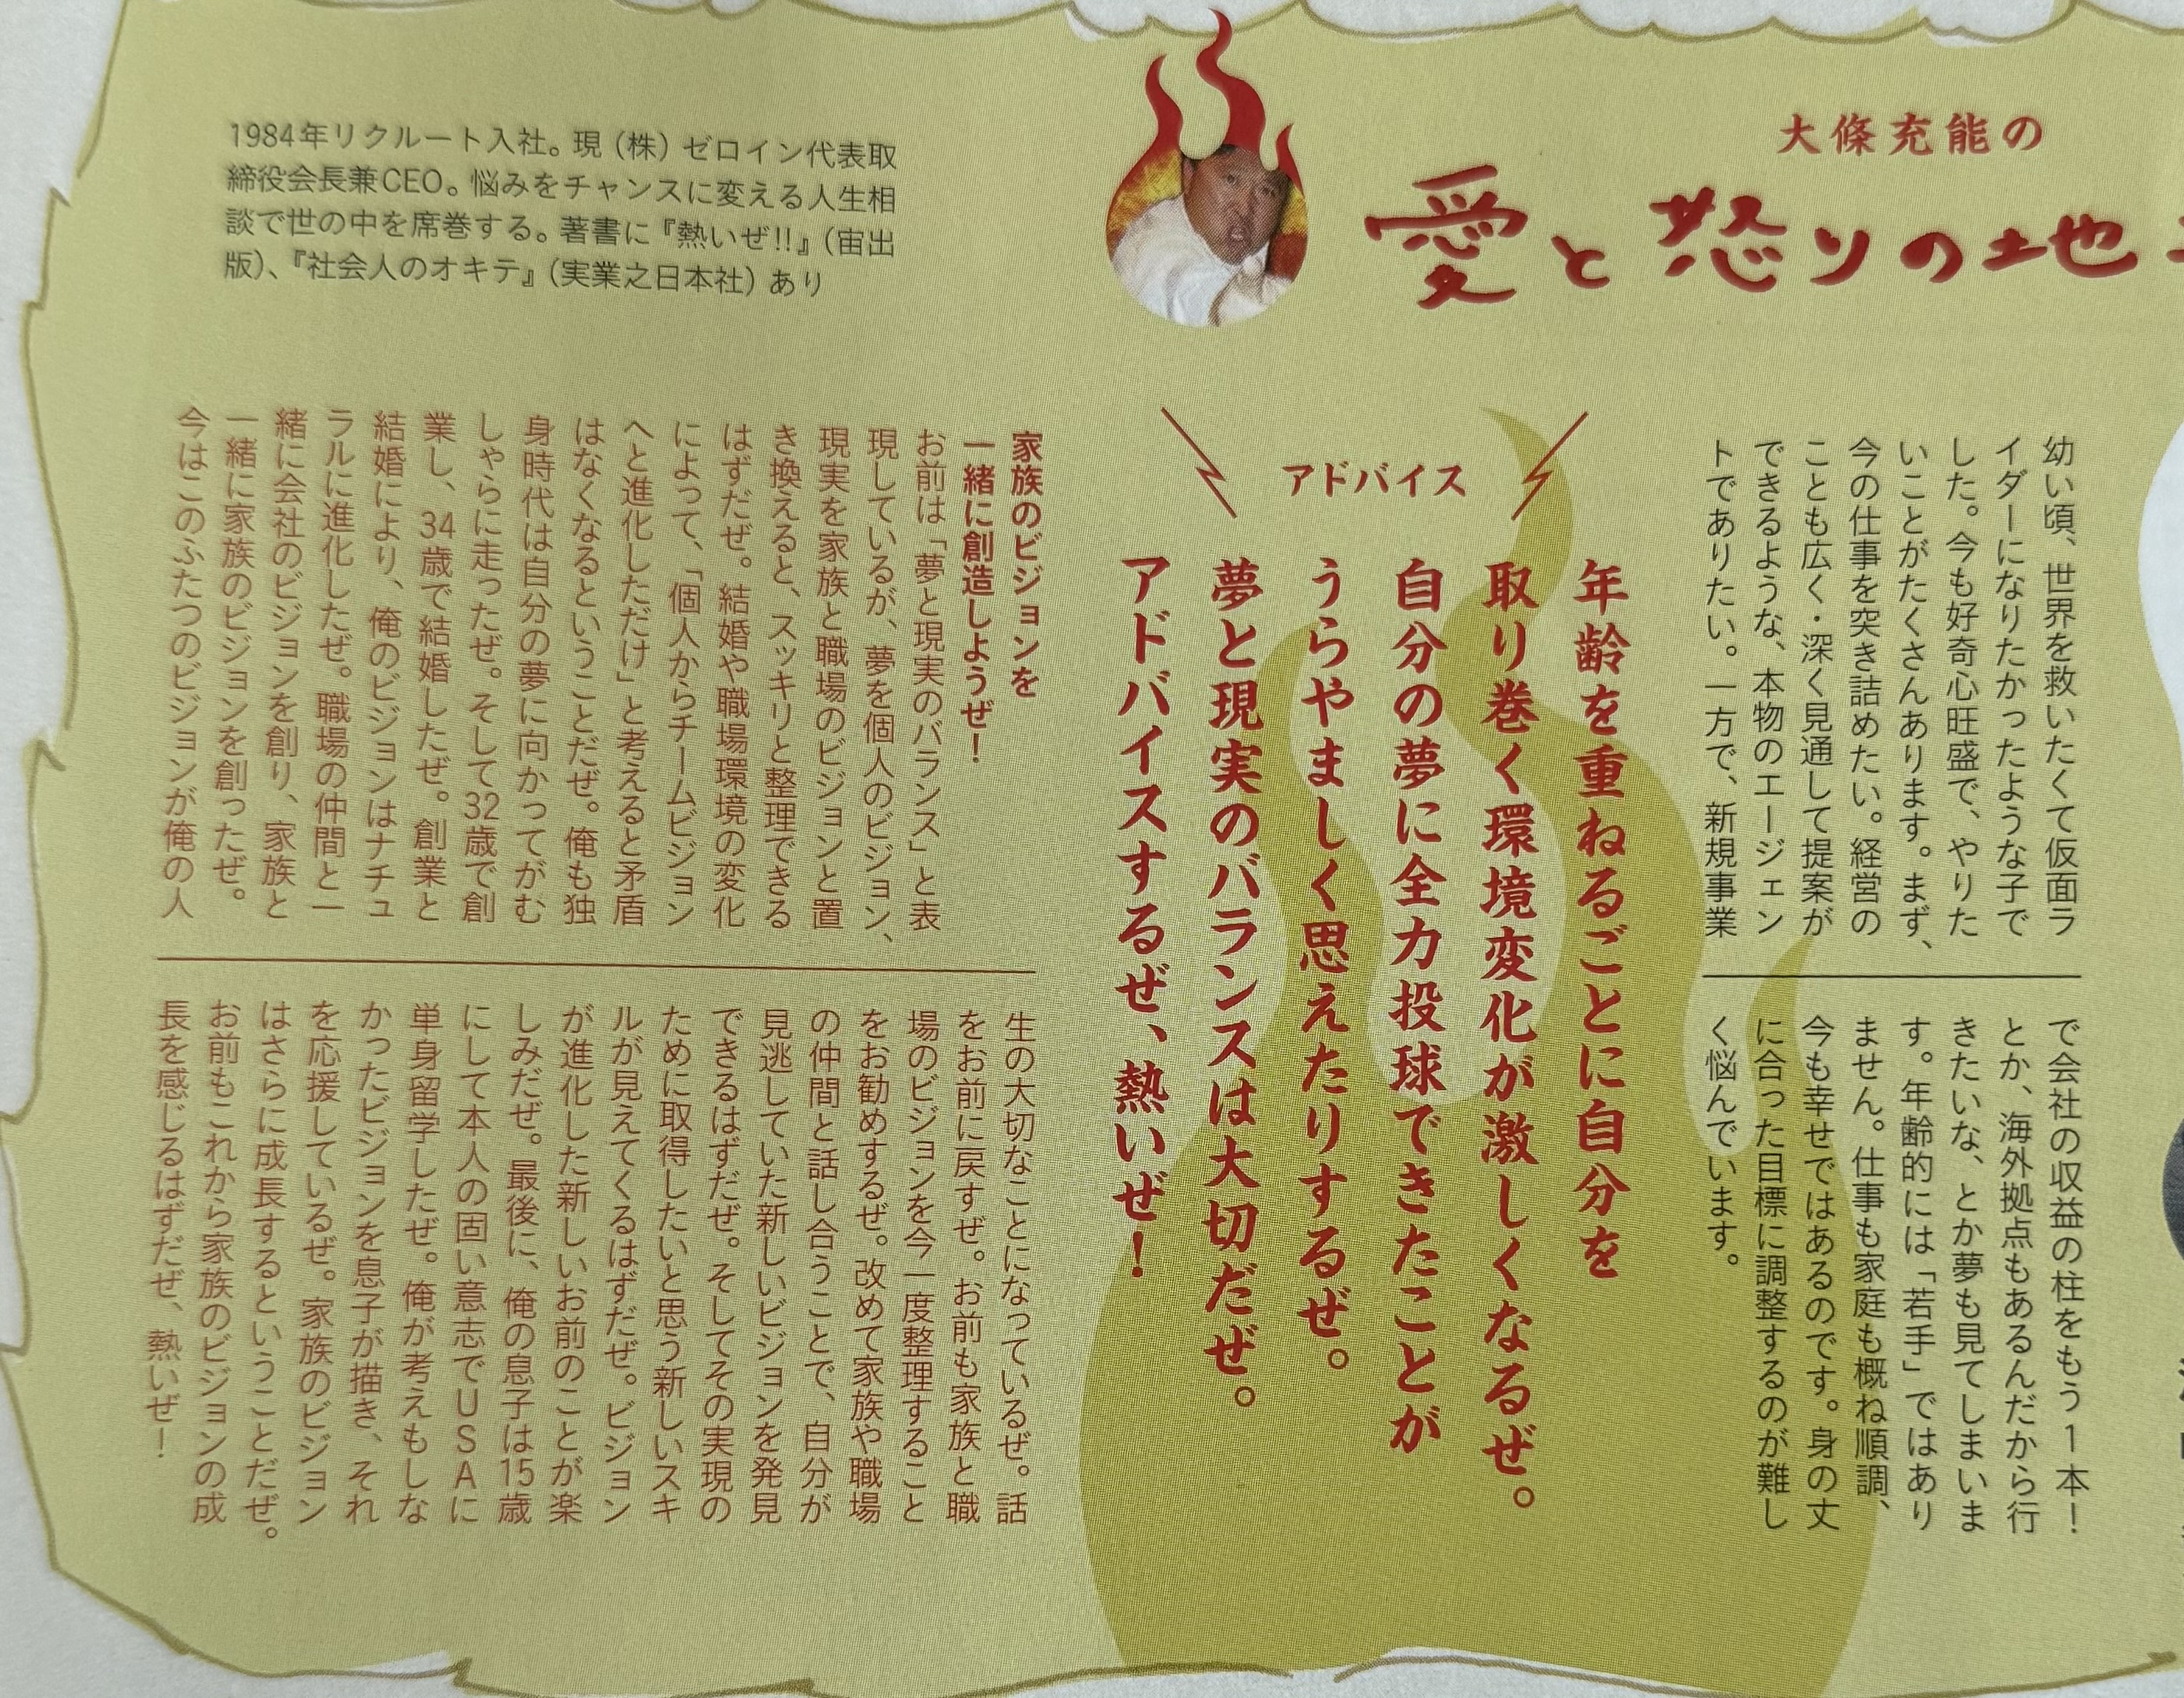 大條充能の
愛と怒りの地
1984年リクルート入社。現（株）ゼロイン代表取
締役会長兼CEO。悩みをチャンスに変える人生相
談で世の中を席巻する。著書に『熱いぜ!!』（宙出
版）、『社会人のオキテ』（実業之日本社）あり
幼い頃、世界を救いたくて仮面ラ
イダーになりたかったような子で
した。今も好奇心旺盛で、やりた
いことがたくさんあります。まず、
今の仕事を突き詰めたい。経営の
ことも広く・深く見通して提案が
できるような、本物のエージェン
トでありたい。一方で、新規事業
で会社の収益の柱をもう1本！
とか、海外拠点もあるんだから行
きたいな、とか夢も見てしまいま
す。年齢的には「若手」ではあり
ません。仕事も家庭も概ね順調、
今も幸せではあるのです。身の丈
に合った目標に調整するのが難し
く悩んでいます。
アドバイス
年齢を重ねるごとに自分を
取り巻く環境変化が激しくなるぜ。
自分の夢に全力投球できたことが
うらやましく思えたりするぜ。
夢と現実のバランスは大切だぜ。
アドバイスするぜ、熱いぜ！
家族のビジョンを
一緒に創造しようぜ！
お前は「夢と現実のバランス」と表
現しているが、夢を個人のビジョン、
現実を家族と職場のビジョンと置
き換えると、スッキリと整理できる
はずだぜ。結婚や職場環境の変化
によって、「個人からチームビジョン
へと進化しただけ」と考えると矛盾
はなくなるということだぜ。俺も独
身時代は自分の夢に向かってがむ
しゃらに走ったぜ。そして32歳で創
業し、34歳で結婚したぜ。創業と
結婚により、俺のビジョンはナチュ
ラルに進化したぜ。職場の仲間と一
緒に会社のビジョンを創り、家族と
一緒に家族のビジョンを創ったぜ。
今はこのふたつのビジョンが俺の人
生の大切なことになっているぜ。話
をお前に戻すぜ。お前も家族と職
場のビジョンを今一度整理すること
をお勧めするぜ。改めて家族や職場
の仲間と話し合うことで、自分が
見逃していた新しいビジョンを発見
できるはずだぜ。そしてその実現の
ために取得したいと思う新しいスキ
ルが見えてくるはずだぜ。ビジョン
が進化した新しいお前のことが楽
しみだぜ。最後に、俺の息子は15歳
にして本人の固い意志でUSAに
単身留学したぜ。俺が考えもしな
かったビジョンを息子が描き、それ
を応援しているぜ。家族のビジョン
はさらに成長するということだぜ。
お前もこれから家族のビジョンの成
長を感じるはずだぜ、熱いぜ！